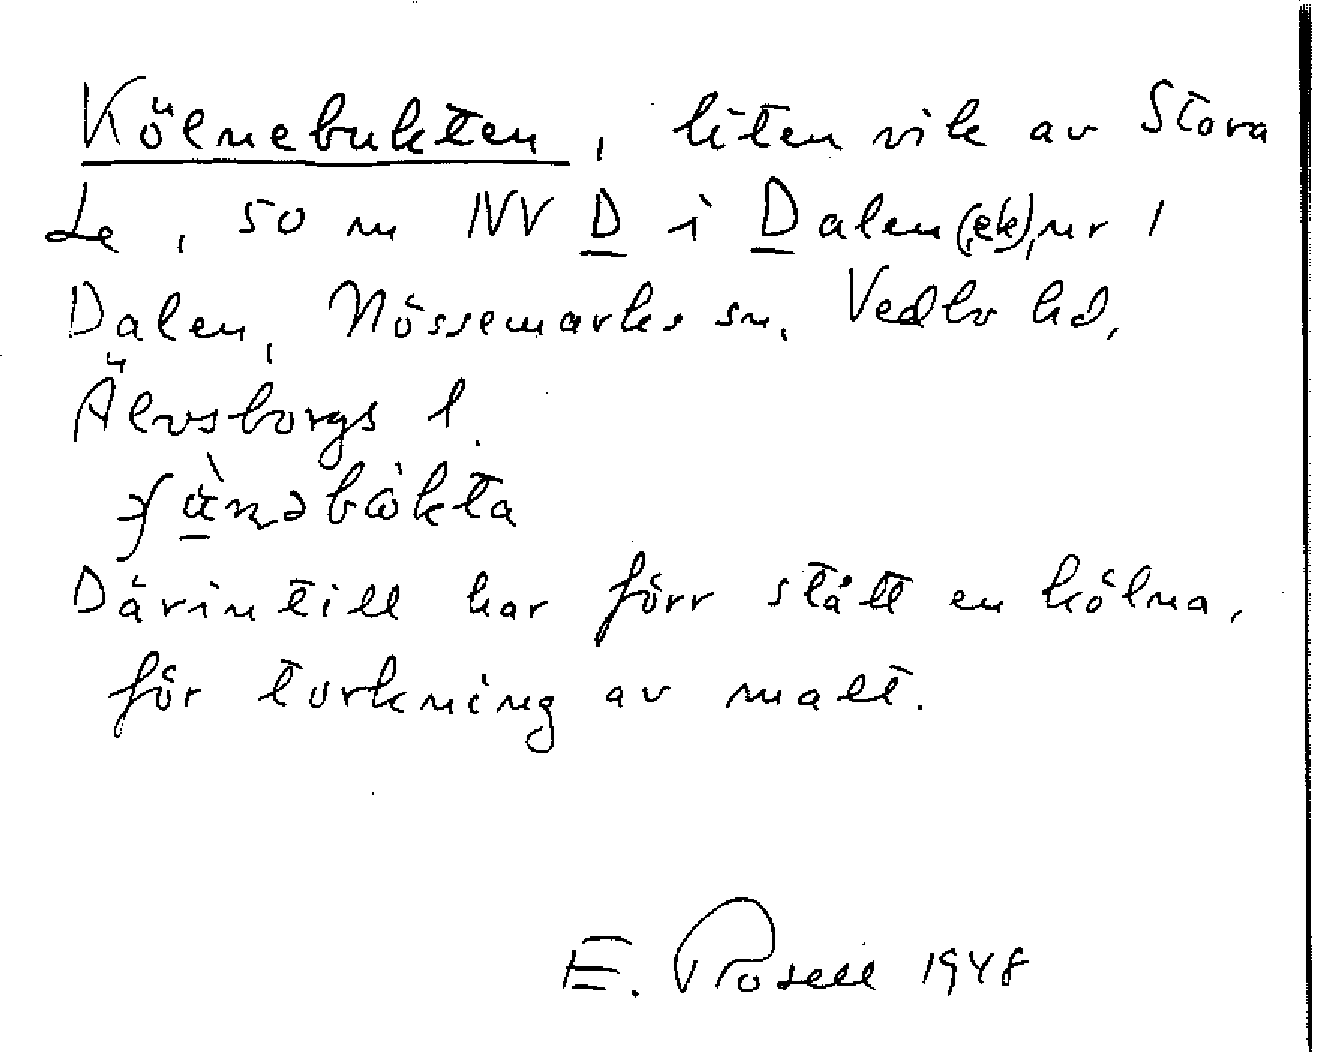 Kölnebukten, liten vik av Stora
Le, 50 m NV D i Dalen (,ek), nr 1
Dalen, Nössemarks sn. Vedbo hd,
Älvsborgs l.
Därintill har förr stått en kölna,
för torkning av malt.
E. Rosell 1948